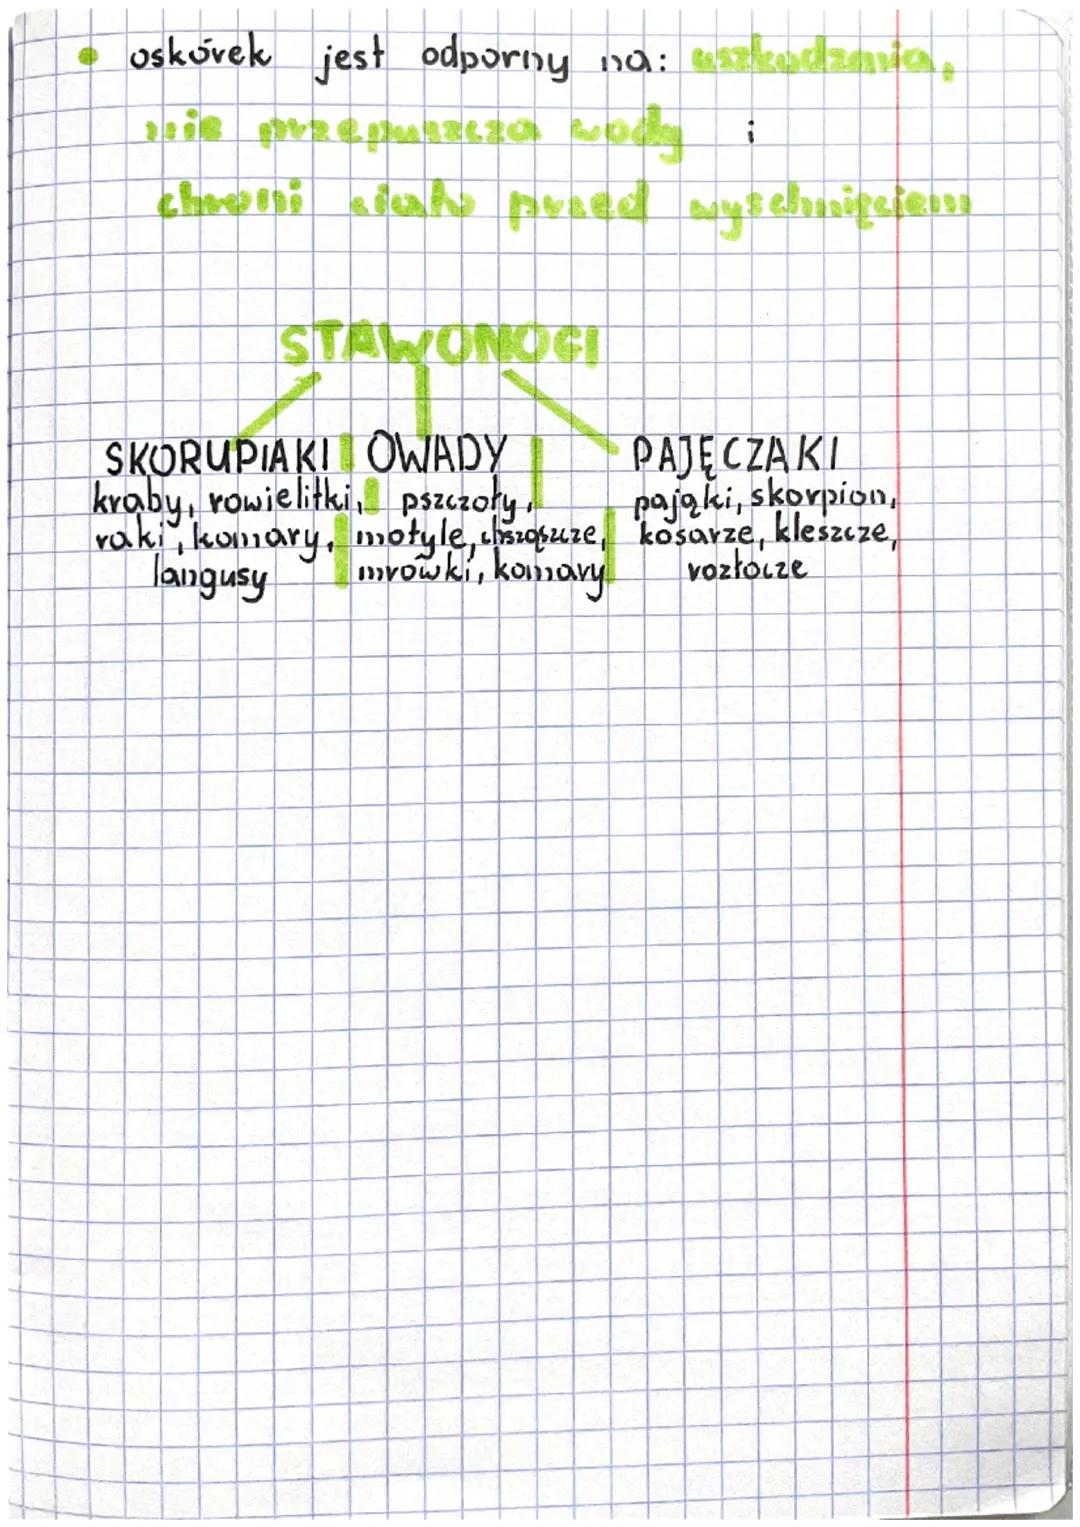 • oskórek jest odporny na: uszkodzenia,
nie przepuszcza wody i
chroni ciało przed wyschnięciem
STAWONOGI
SKORUPIAKI OWADY PAJĘCZAKI
kraby, rowielitki, pszczoły, pająki, skorpion,
raki, komary, motyle, chrząszcze, kosarze, kleszcze,
langusy mrówki, komary roztocze